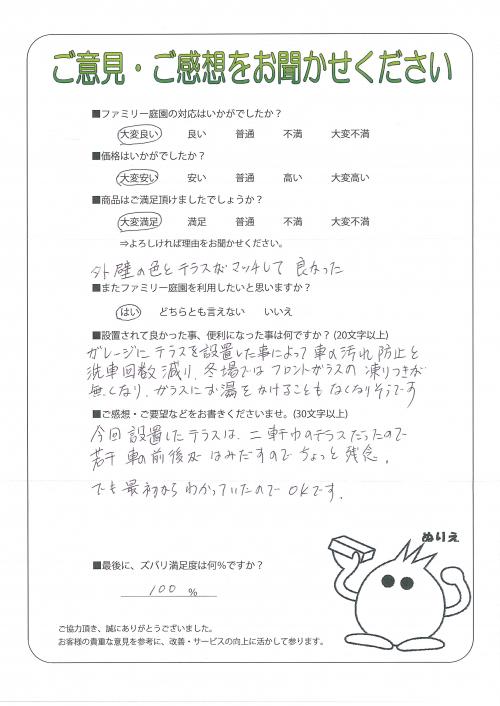 ご意見・ご感想をお聞かせください
■ファミリー庭園の対応はいかがでしたか？
大変良い 良い 普通 不満 大変不満
■価格はいかがでしたか？
大変安い 安い 普通 高い 大変高い
■商品はご満足頂けましたでしょうか？
大変満足 満足 普通 不満 大変不満
⇒よろしければ理由をお聞かせください。
外壁の色とテラスがマッチして良なった
■またファミリー庭園を利用したいと思いますか？
はい どちらとも言えない いいえ
■設置されて良かった事、便利になった事は何ですか？(20文字以上)
ガレージにテラスを設置した事によって車の汚れ防止と
洗車回数減り、冬場ではフロントガラスの凍りつきが
無くなり、ガラスにお湯をかけることもなくなりそうです
■ご感想・ご要望などをお書きくださいませ。(30文字以上)
今回設置したテラスは、二軒巾のテラスだったので
若干車の前後が はみだすのでちょっと残念。
でも最初からわかっていたのでOKです。
ぬりえ
■最後に、ズバリ満足度は何％ですか？
100 ％
ご協力頂き、誠にありがとうございました。
お客様の貴重な意見を参考に、改善・サービスの向上に活かして参ります。